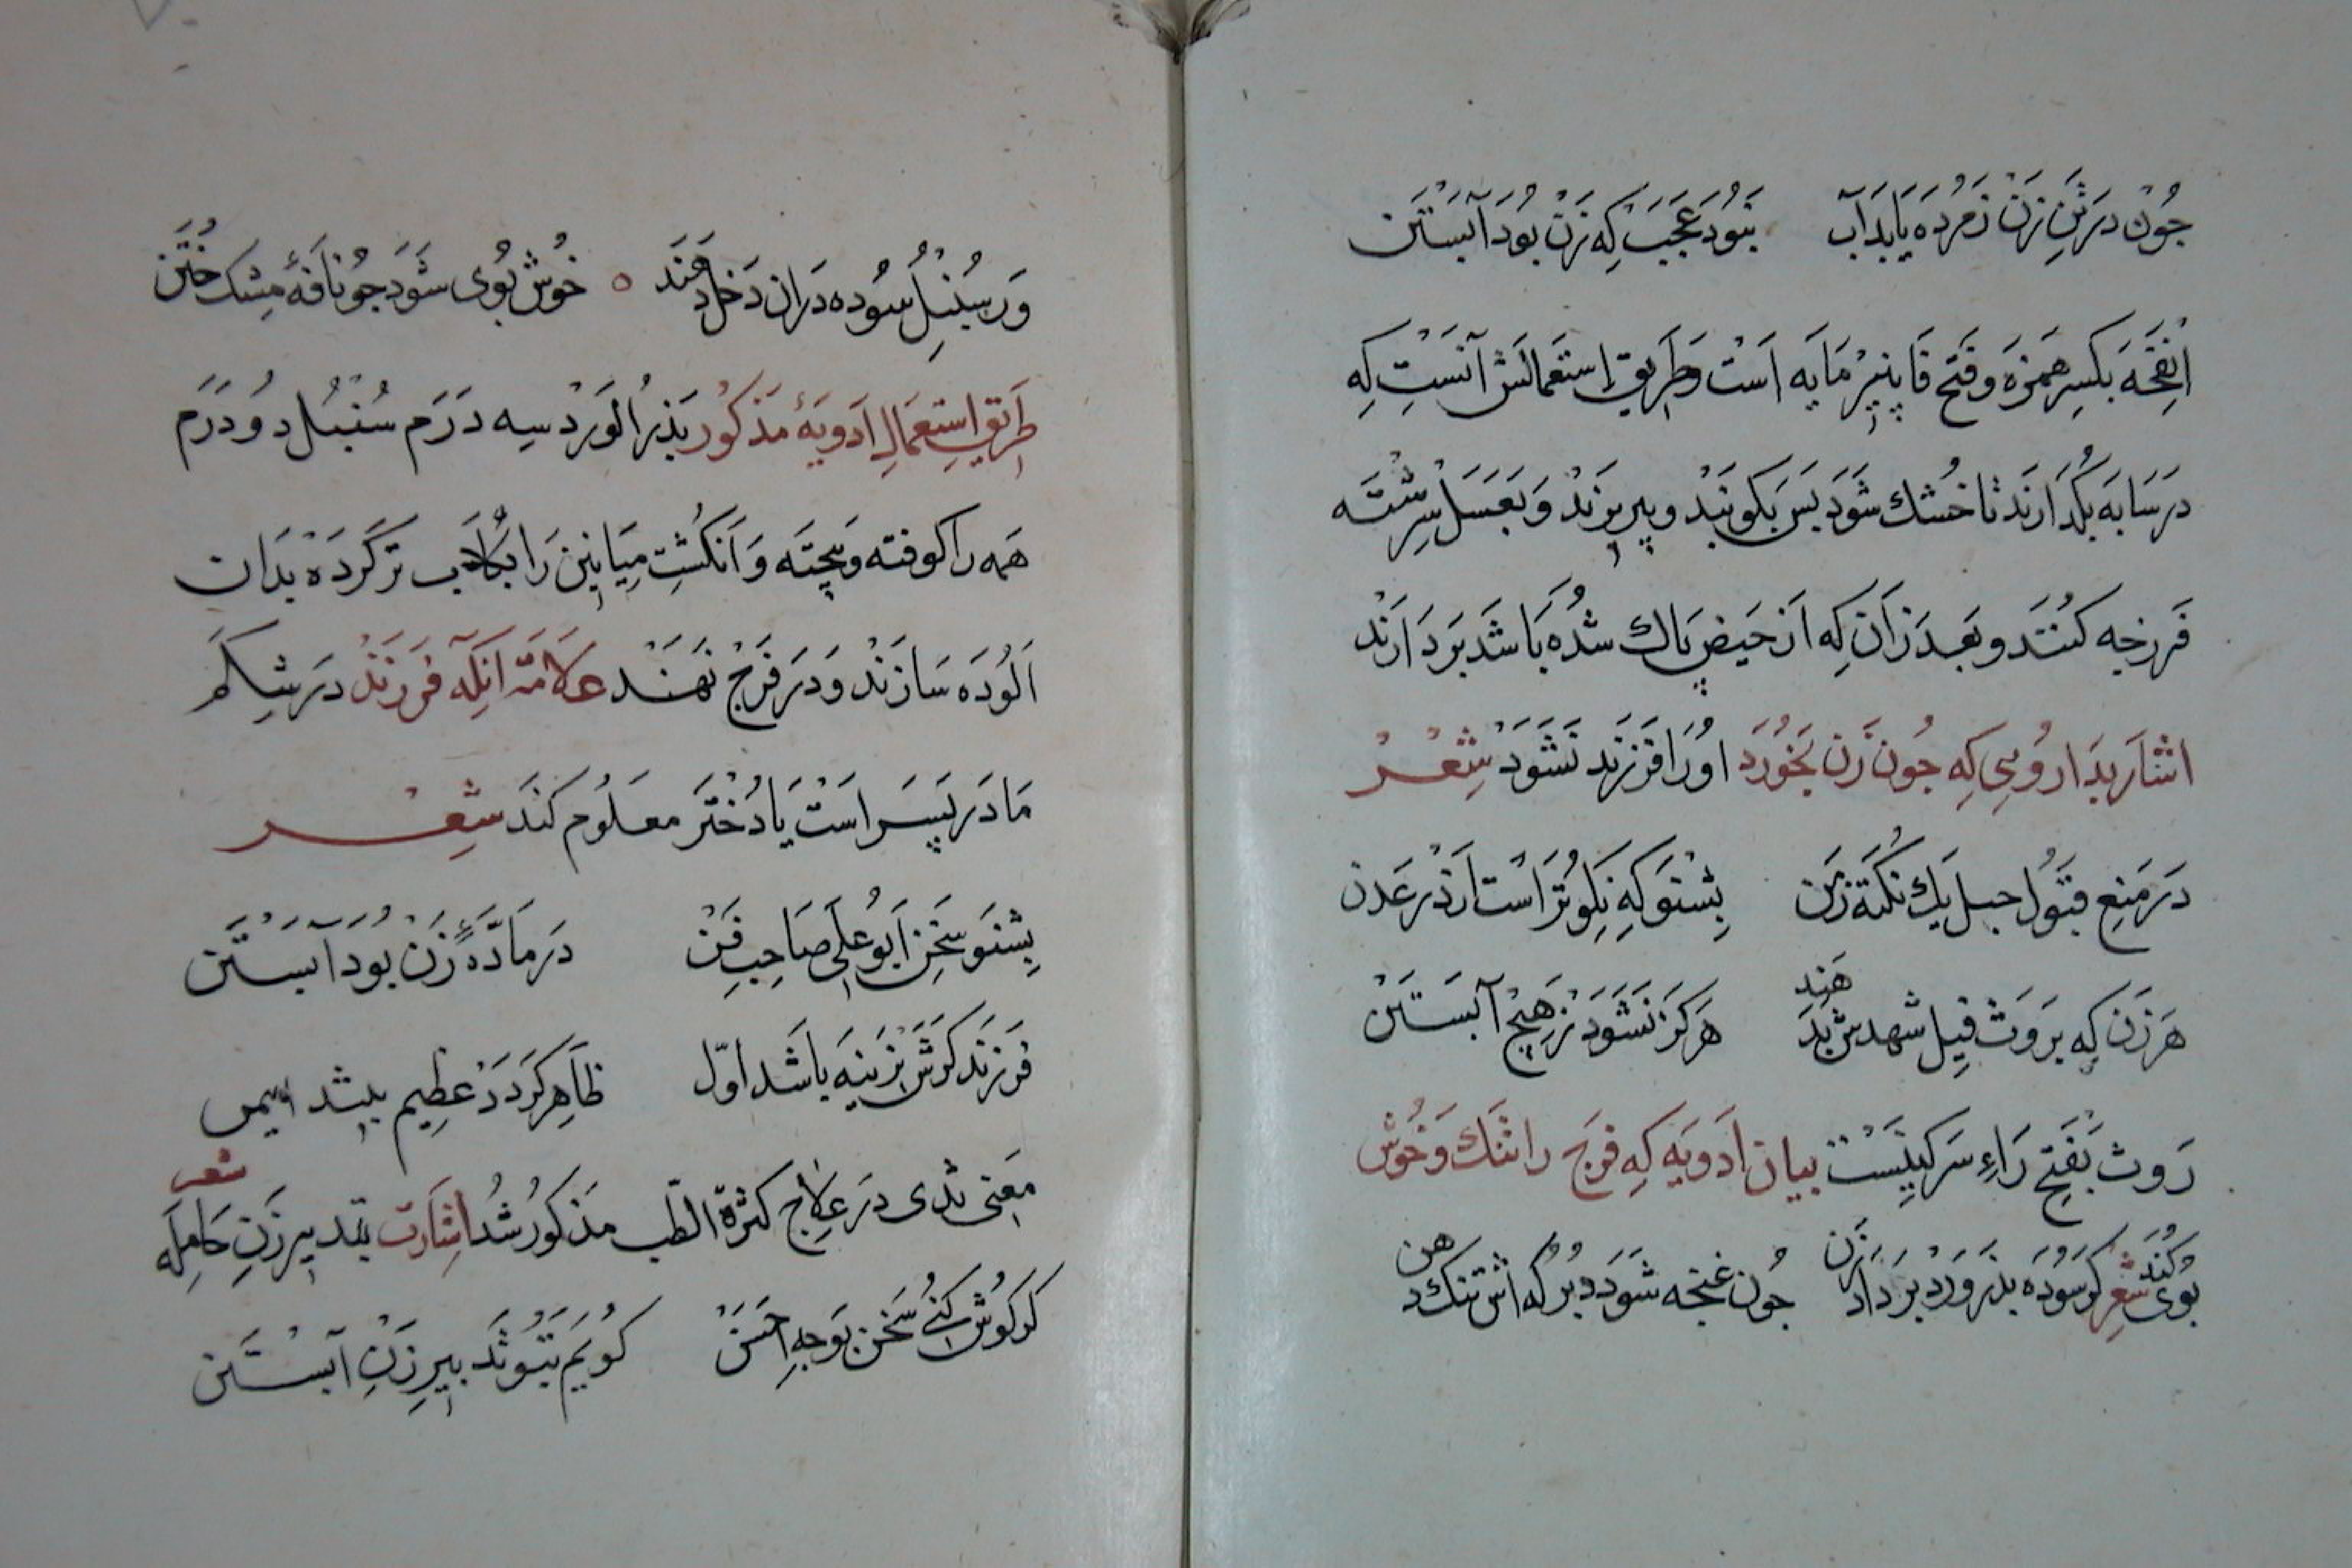 جون در تن زن ز مرد یابد آب نبود عجب که زن بود آبستن
انفحه بکسر همزه و فتح فا پنیر مایه است و طریق استعمالش آنست که
در سایه بگذارند تا خشك شود پس بکوبند و بپزند و بعسل سرشته
فرزجه کنند و بعد زان که از حیض پاك شده باشد بردارند
اشار بداروسی که جون زن بخورد او را فرزند نشود شعر
در منع قبول حبل یك نکته زمن بشنو که نکوتر است از در عدن
هر زن که بروث فیل شهدش بدهند هرگز نشود ز هیچ آبستن
روث بفتح راء سرکینست بیان ادویه که فرج را تنك و خوش
بوی کند شعر کر سوده بذر ورد بردارد زن جون غنجه شود دبر که اش تنك دهن
ور سنبل سوده در ان دخل دهند خوش بوی شود جو نافهٔ مشك ختن
طریق استعمال ادویهٔ مذکور بذر الورد سه درم سنبل دو درم
همه را کوفته و بیخته و انکشت میانین را بکلاب تر کرده بدان
الوده سازند و در فرج نهند علامة انکه فرزند در شکم
مادر پسر است یا دختر معلوم کند شعر
بشنو سخن ابو علی صاحب فن در مادهٔ زن بود آبستن
فرزند کرش نرینه باشد اول ظاهر کردد عظیم ایمن
معنی ثدی در علاج کثرة الطب مذکور شد اشارت بتدبیر زن حامله شعر
کر کوش کنی سخن بوجه احسن کویم بتو تدبیر زن آبستن